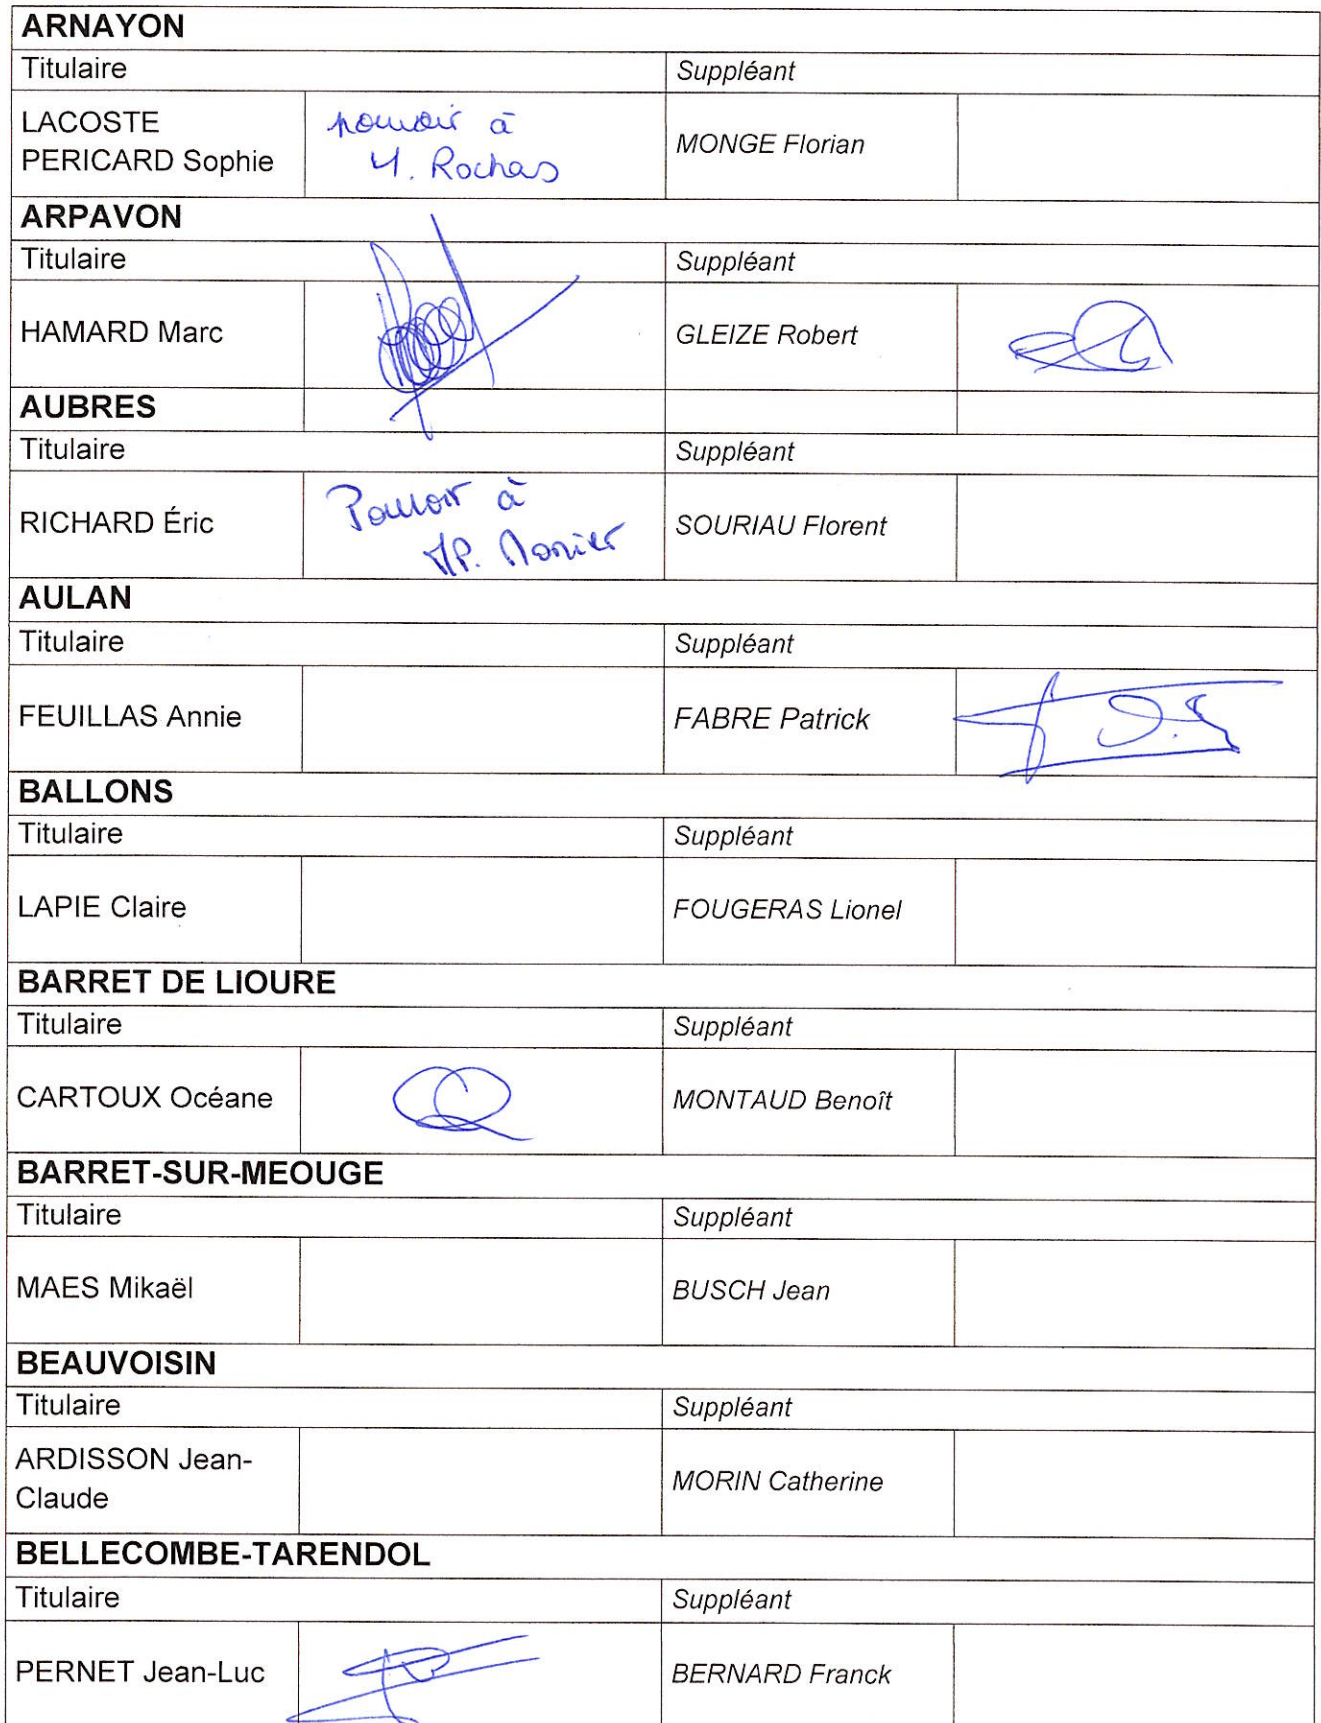 ARNAYON
Titulaire Suppléant
LACOSTE
PERICARD Sophie
pouvoir à
M. Rochas
MONGE Florian
ARPAVON
Titulaire Suppléant
HAMARD Marc GLEIZE Robert
AUBRES
Titulaire Suppléant
RICHARD Éric
Pouvoir à
JP. Monier
SOURIAU Florent
AULAN
Titulaire Suppléant
FEUILLAS Annie FABRE Patrick
BALLONS
Titulaire Suppléant
LAPIE Claire FOUGERAS Lionel
BARRET DE LIOURE
Titulaire Suppléant
CARTOUX Océane MONTAUD Benoît
BARRET-SUR-MEOUGE
Titulaire Suppléant
MAES Mikaël BUSCH Jean
BEAUVOISIN
Titulaire Suppléant
ARDISSON Jean-
Claude
MORIN Catherine
BELLECOMBE-TARENDOL
Titulaire Suppléant
PERNET Jean-Luc BERNARD Franck